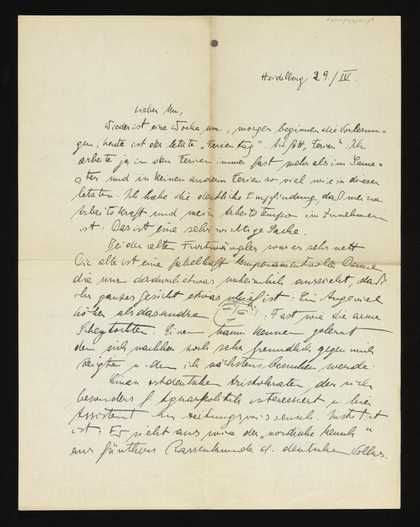 Heidelberg 29/IV.
Lieber
Wieder ist eine Woche um, morgen beginnen die Vorlesun-
gen, heute ist der letzte „Ferientag". „Ferien" Ich
arbeite ja in den Ferien immer fast mehr als im Seme-
ster und in keinen anderen Ferien so viel wie in diesen
letzten. Ich habe die deutliche Empfindung, daß meine
Arbeitskraft und mein Arbeitstempo im Zunehmen
ist. Das ist eine sehr wichtige Sache.
Bei der alten Furtwängler war es sehr nett
Die alte ist eine fabelhaft temperamentvolle Dame
die nur dadurch etwas unheimlich aussieht, daß
ihr ganzes Gesicht etwas schief ist. Ein Auge viel
höher als das andre. Fast wie die arme
Einen Mann kennen gelernt
der sich nachher noch sehr freundlich gegen mich
zeigte u. den ich nächstens besuchen werde:
Einen ostdeutschen Aristokraten der sich
besonders f. Agrarpolitik interessiert u. hier
Assistent am Zeitungswissensch. Institut
ist. Er sieht aus wie der „nordische Mensch"
aus Günthers Rassenkunde d. deutschen Volkes.